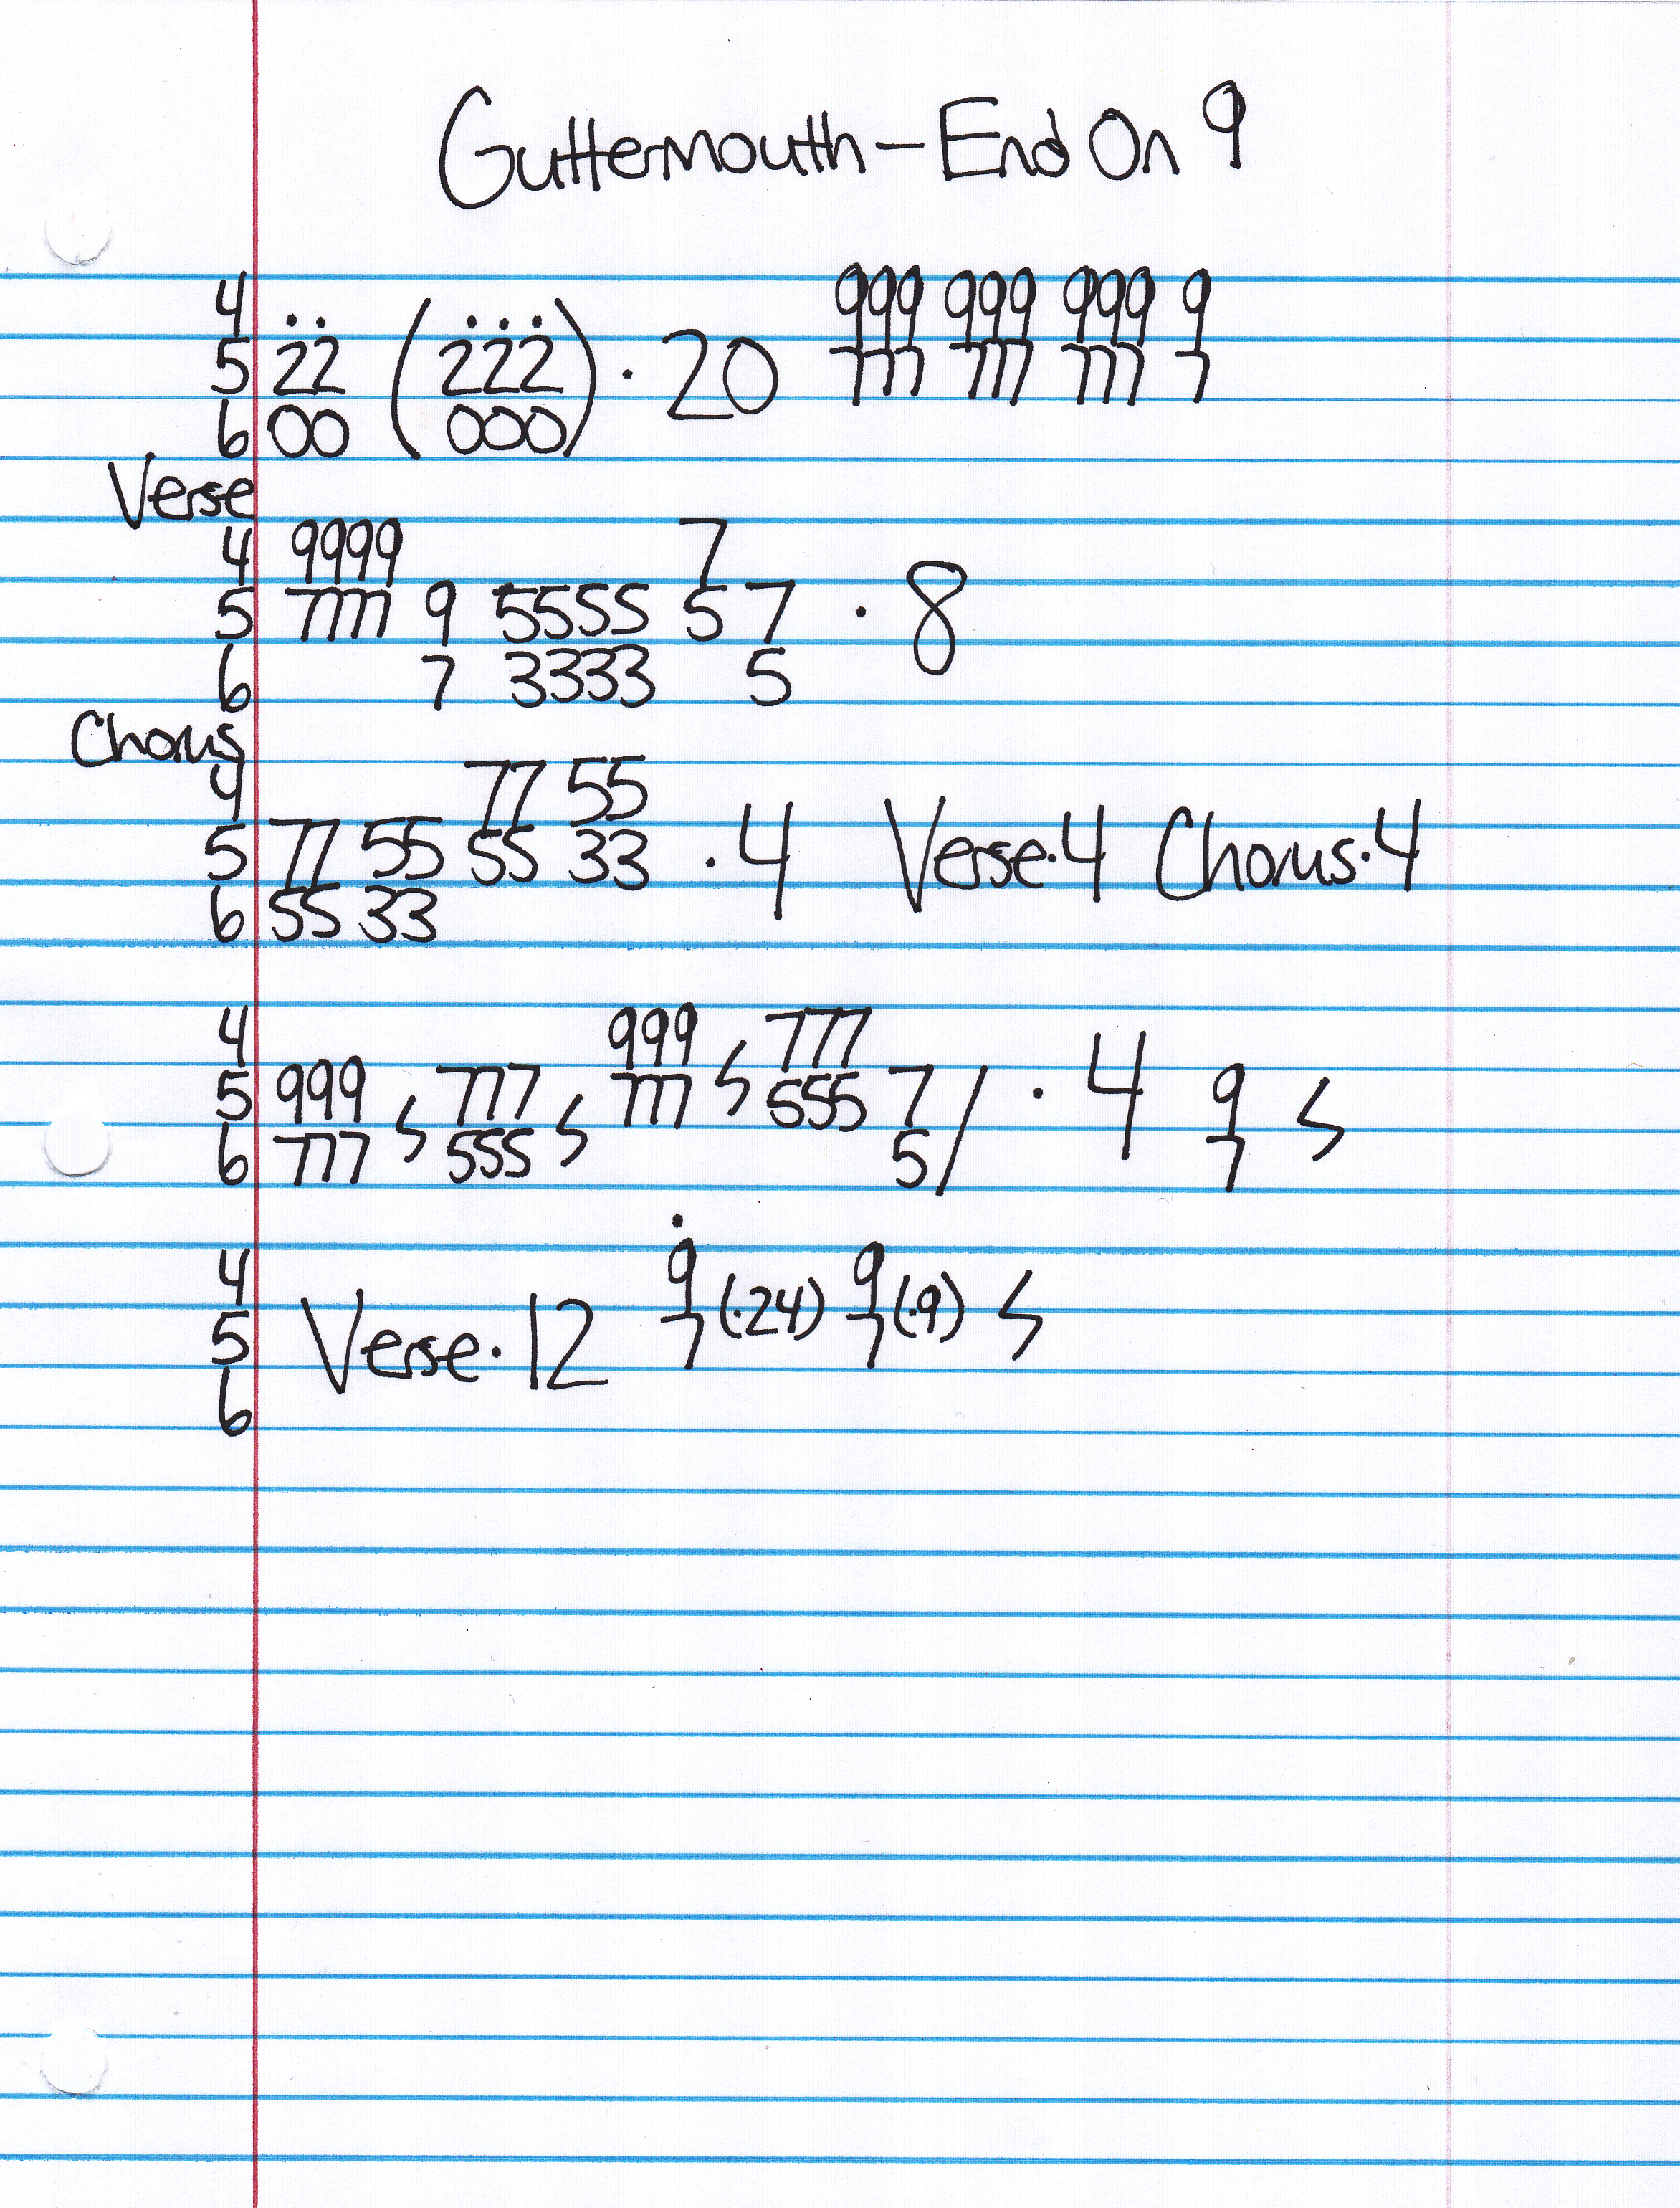 Guttermouth - End On 9
4 .. ... 999 999 999 9
5 22 ( 222 ) · 20 777 777 777 7
6 00 000
Verse
4 9999 7
5 7777 9 5555 5 7 · 8
6 7 3333 5
Chorus
4 77 55
5 77 55 55 33 · 4 Verse·4 Chorus·4
6 55 33
4 999 777
5 999 𝄽 777 𝄽 777 𝄽 555 7 / · 4 9 𝄽
6 777 555 5 7
4 9 9
5 Verse·12 7 (·24) 7 (·9) 𝄽
6